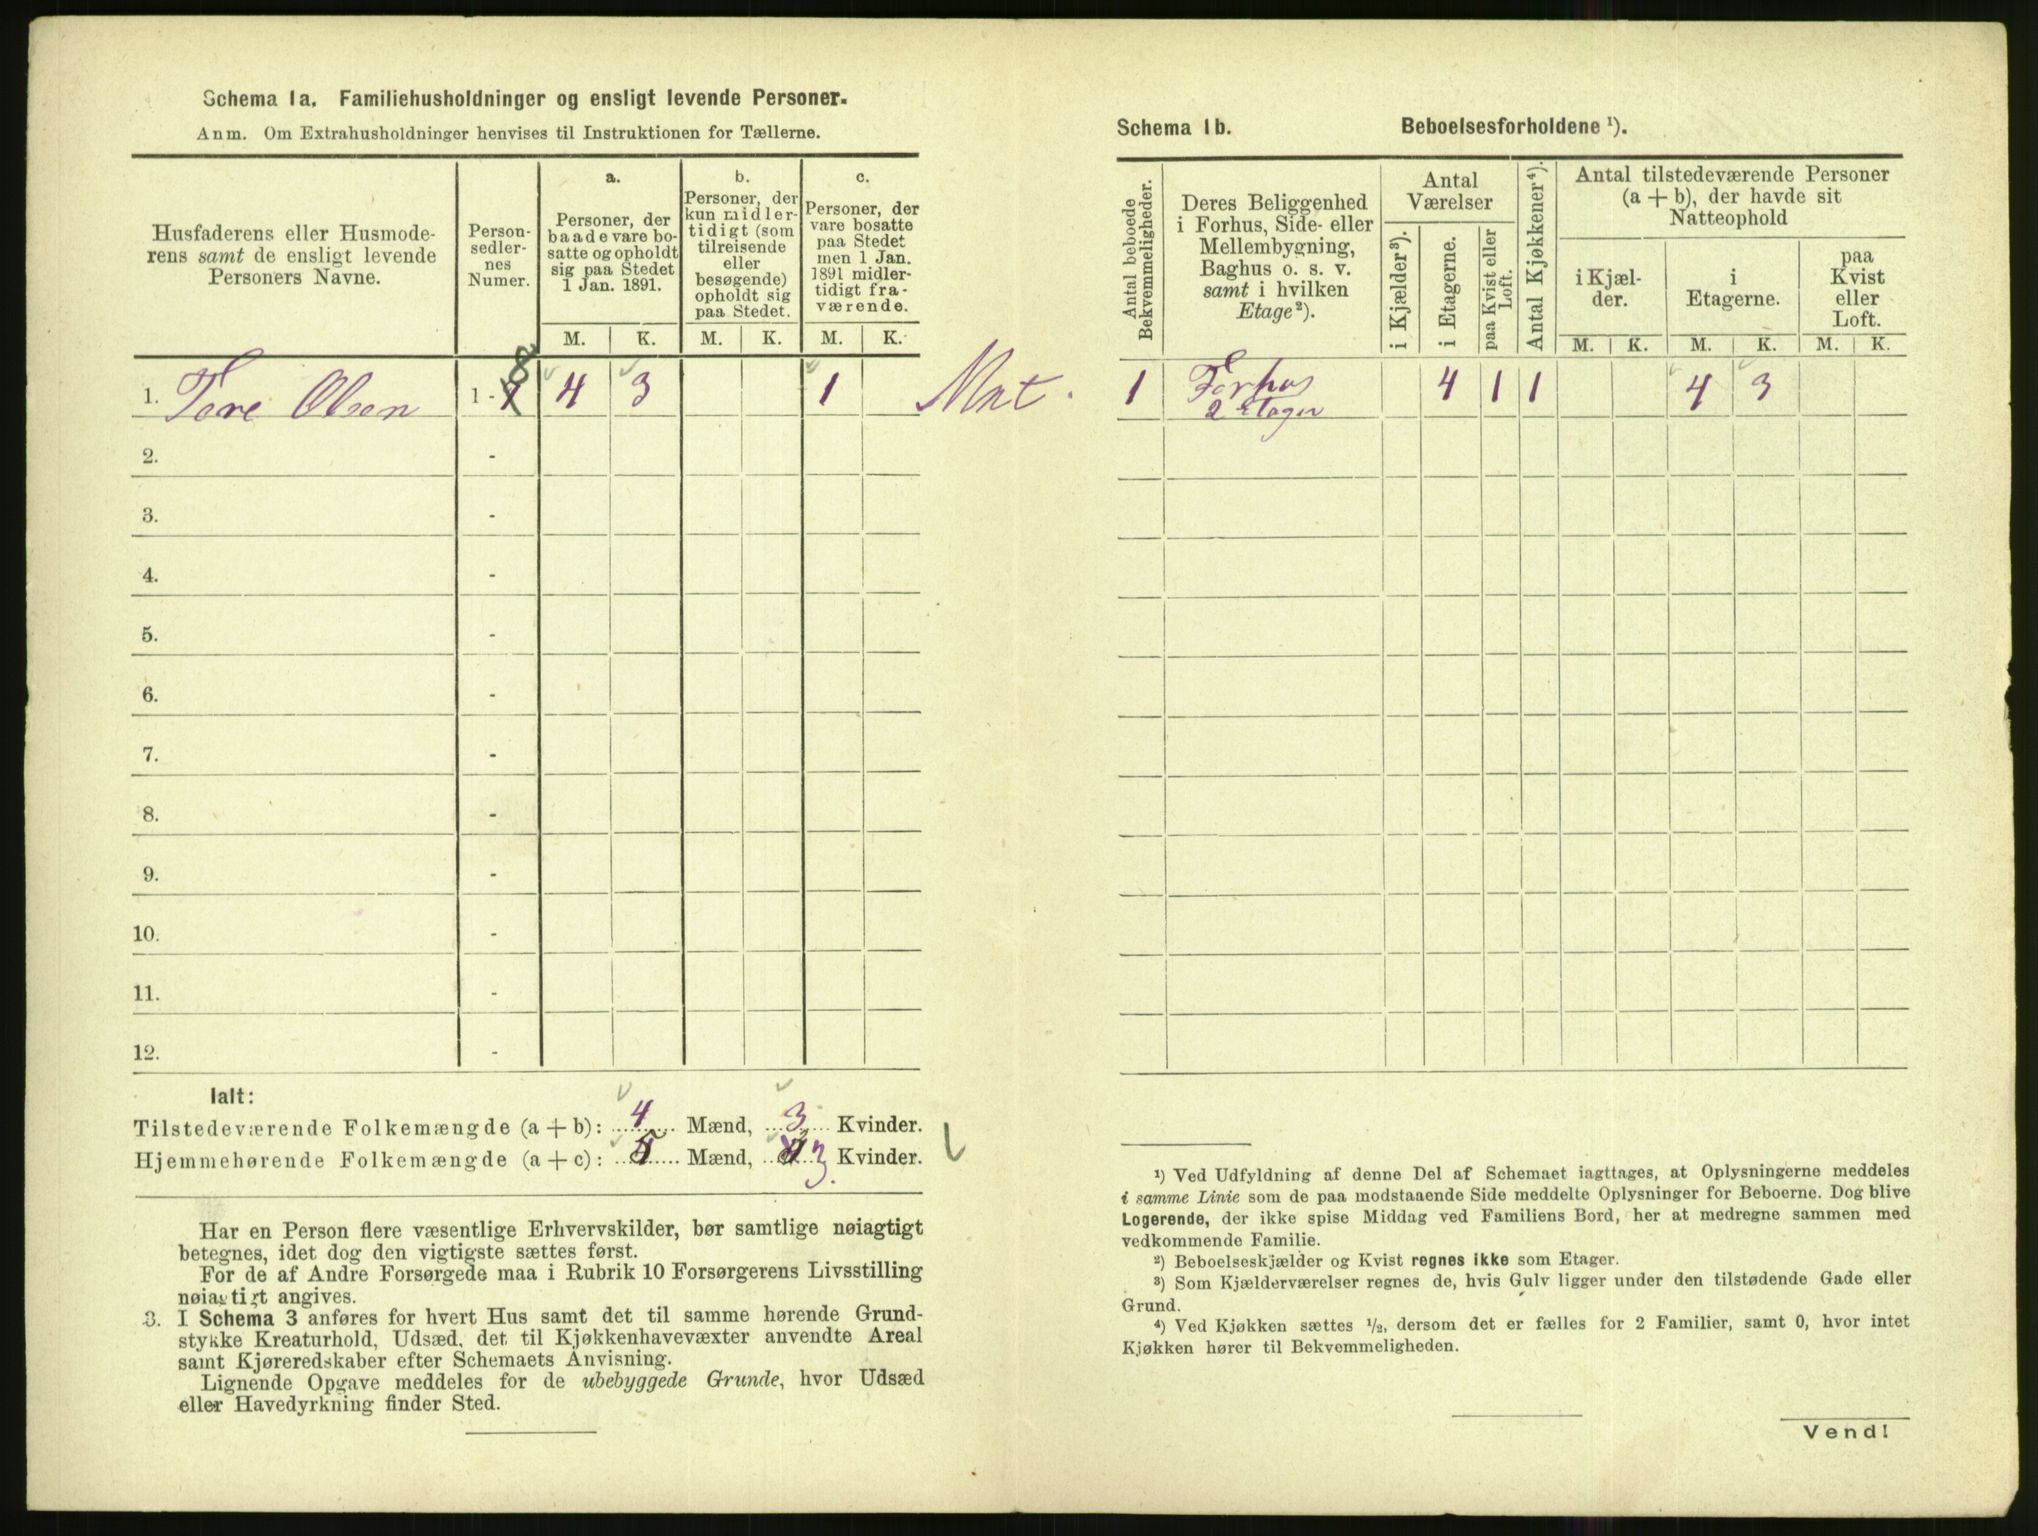 Schema 1a. Familiehusholdninger og ensligt levende Personer.
Anm. Om Extrahusholdninger henvises til Instruktionen for Tællerne.
Husfaderens eller Husmode-
rens samt de ensligt levende
Personers Navne.
Person-
sedler-
nes
Numer.
a.
Personer, der
baade vare bo-
satte og opholdt
sig paa Stedet
1 Jan. 1891.
b.
Personer, der
kun midler-
tidigt (som
tilreisende
eller
besøgende)
opholdt sig
paa Stedet.
c.
Personer, der
vare bosatte
paa Stedet
men 1 Jan.
1891 midler-
tidigt fra-
værende.
M. K. M. K. M. K.
1. Tore Olsen 1 - 8 4 3 1 Mat.
2. -
3. -
4. -
5. -
6. -
7. -
8. -
9. -
10. -
11. -
12. -
Ialt:
Tilstedeværende Folkemængde (a + b): 4 Mænd, 3 Kvinder.
Hjemmehørende Folkemængde (a + c): 5 Mænd, 3. Kvinder.
Har en Person flere væsentlige Erhvervskilder, bør samtlige nøiagtigt
betegnes, idet dog den vigtigste sættes først.
For de af Andre Forsørgede maa i Rubrik 10 Forsørgerens Livsstilling
nøiagtigt angives.
3. I Schema 3 anføres for hvert Hus samt det til samme hørende Grund-
stykke Kreaturhold, Udsæd, det til Kjøkkenhavevæxter anvendte Areal
samt Kjøreredskaber efter Schemaets Anvisning.
Lignende Opgave meddeles for de ubebyggede Grunde, hvor Udsæd
eller Havedyrkning finder Sted.
Schema 1b. Beboelsesforholdene ¹).
Antal beboede
Bekvemmeligheder.
Deres Beliggenhed
i Forhus, Side- eller
Mellembygning,
Baghus o. s. v.
samt i hvilken
Etage²).
Antal
Værelser
i Kjælder³).
i Etagerne.
paa Kvist eller
Loft.
Antal Kjøkkener⁴).
Antal tilstedeværende Personer
(a + b), der havde sit
Natteophold
i Kjæl-
der.
i
Etagerne.
paa
Kvist
eller
Loft.
M. K. M. K. M. K.
1 Forhus 4 1 1 4 3
2 Etager
¹) Ved Udfyldning af denne Del af Schemaet iagttages, at Oplysningerne meddeles
i samme Linie som de paa modstaaende Side meddelte Oplysninger for Beboerne. Dog blive
Logerende, der ikke spise Middag ved Familiens Bord, her at medregne sammen med
vedkommende Familie.
²) Beboelseskjælder og Kvist regnes ikke som Etager.
³) Som Kjælderværelser regnes de, hvis Gulv ligger under den tilstødende Gade eller
Grund.
⁴) Ved Kjøkken sættes ½, dersom det er fælles for 2 Familier, samt 0, hvor intet
Kjøkken hører til Bekvemmeligheden.
Vend!